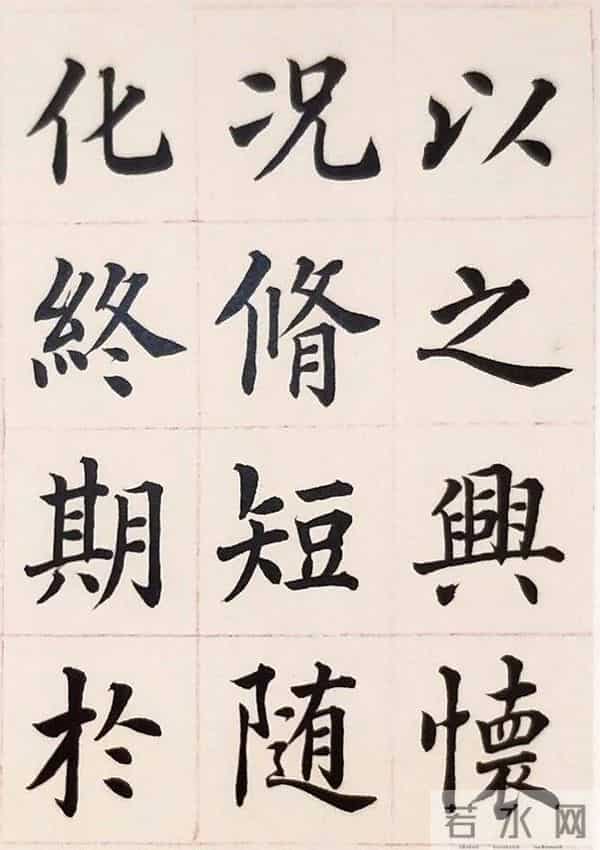 以之興懷
况脩短随
化終期於
若水网